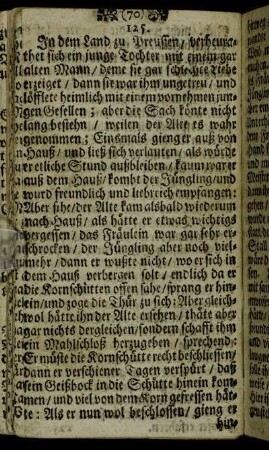 (70)
125.
In dem Land zu Preussen / verheura-
thet sich ein junge Tochter mit einem gar
alten Mann / deme sie gar schlechte Liebe
erzeiget / dann sie war ihm ungetreu / und
löfflete heimlich mit einem vornehmen jun-
gen Gesellen ; aber die Sach konte nicht
lang bestehn / weilen der Alte es wahr
genommen ; Einsmals gieng er auß von
Hauß / und ließ sich verlauten / als würde
er etliche Stund außbleiben / kaum war er
auß dem Hauß / kombt der Jüngling / und
wurd freundlich und liebreich empfangen:
Aber sihe / der Alte kam alsbald wiederum
nach Hauß / als hätte er etwas wichtigs
vergessen / das Fräulein war gar sehr er-
schrocken / der Jüngling aber noch viel-
mehr / dann er wußte nicht / wo er sich in
dem Hauß verbergen solt / endlich da er
die Kornschütten offen sahe / sprang er hin-
ein / und zoge die Thür zu sich: Aber gleich-
wol hätte ihn der Alte ersehen / thäte aber
gar nichts dergleichen / sondern schafft ihm
ein Mahlschloß herzugeben / sprechend:
Er müste die Kornschütte recht beschliessen /
dann er verschiener Tagen verspürt / daß
ein Geißbock in die Schütte hinein kom-
men / und viel von dem Korn gefressen hät-
te : Als er nun wol beschlossen / gieng er
hin-